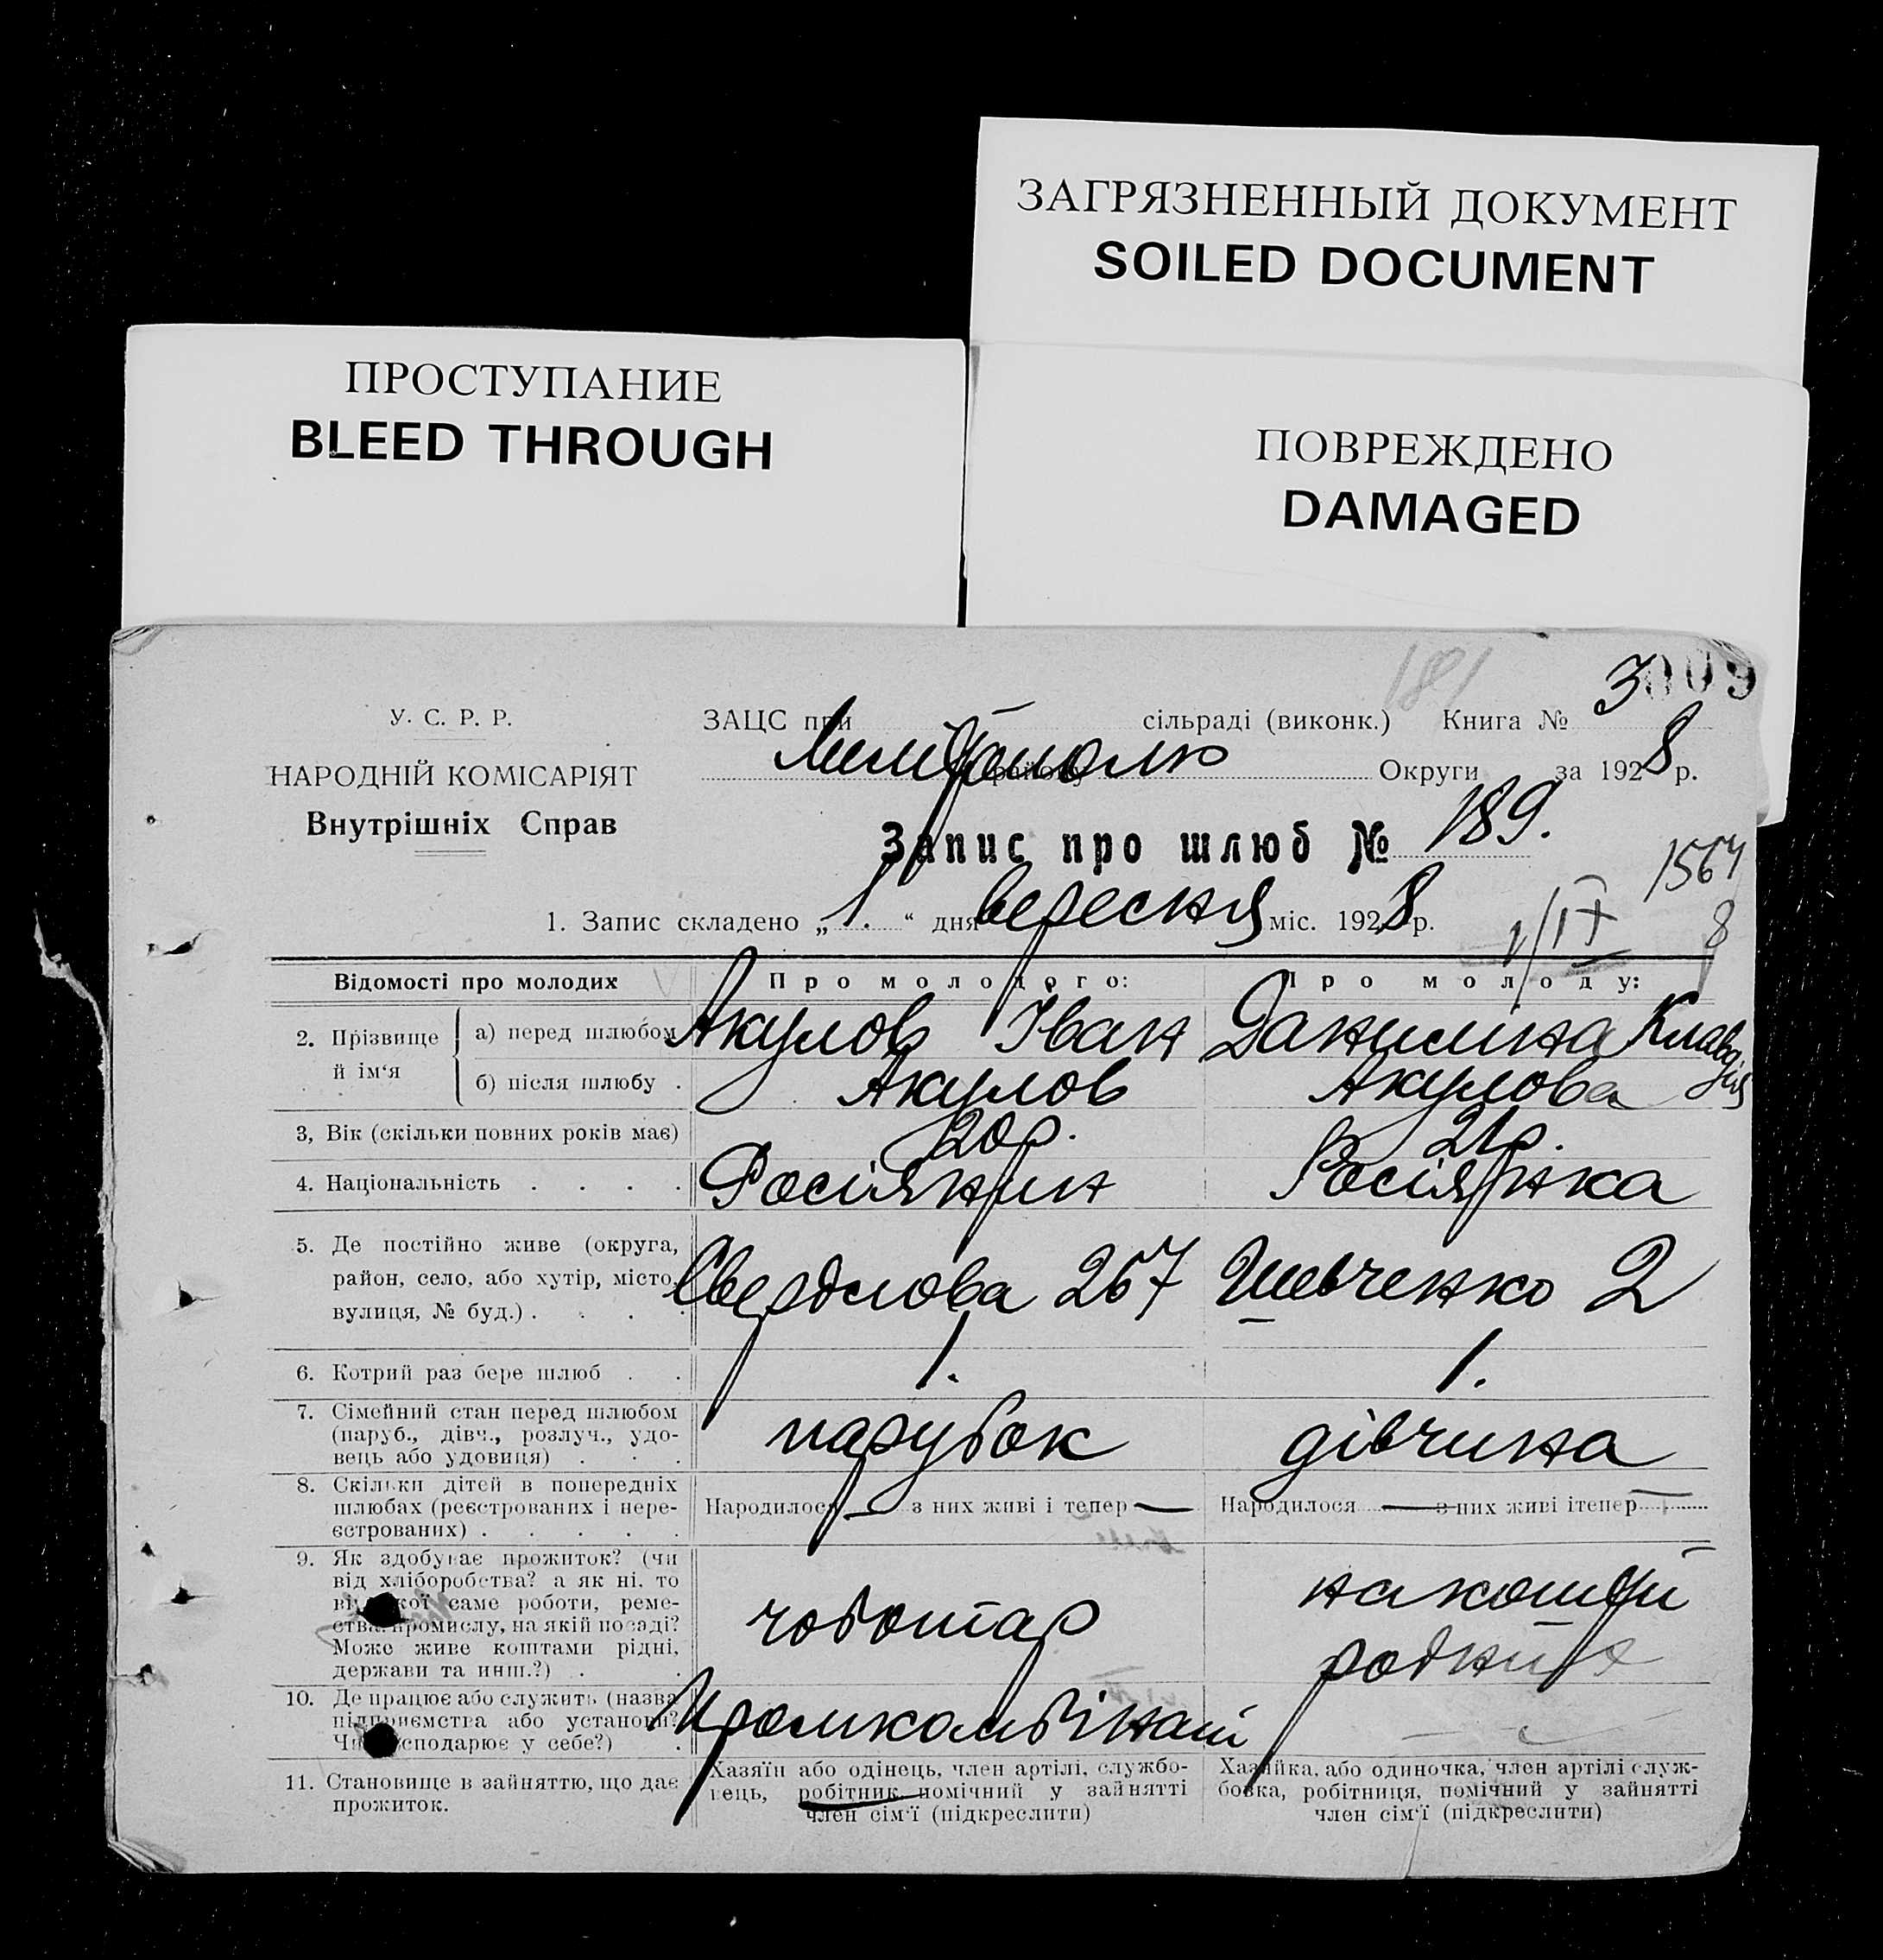 ЗАГРЯЗНЕННЫЙ ДОКУМЕНТ
SOILED DOCUMENT
ПРОСТУПАНИЕ
BLEED THROUGH
ПОВРЕЖДЕНО
DAMAGED
181
3009
У. С. Р. Р.
НАРОДНІЙ КОМІСАРІЯТ
Внутрішніх Справ
ЗАЦС при сільраді (виконк.) Книга №
району Округи за 1928 р.
Запис про шлюб № 189.
1564
8
1. Запис складено „1.“ дня вересня міс. 1928 р.
1/IX
Відомості про молодих Про молодого: Про молоду:
2. Прізвище й ім‘я
а) перед шлюбом Акулов Іван Даниліна Клавдія
б) після шлюбу . Акулов Акулова
3, Вік (скільки повних років має) 20р. 21р.
4. Національність . . . . Росіянин Росіянка
5. Де постійно живе (округа,
район, село, або хутір, місто,
вулиця, № буд.) . . . .
Свердлова 267 Шевченко 2
6. Котрий раз бере шлюб . . 1. 1.
7. Сімейний стан перед шлюбом
(паруб., дівч., розлуч., удо-
вець або удовиця) . . .
парубок дівчина
8. Скільки дітей в попередніх
шлюбах (реєстрованих і нере-
єстрованих) . . . . .
Народилося — з них живі і тепер — Народилося — з них живі ітепер —
9. Як здобуває прожиток? (чи
від хліборобства? а як ні, то
від кої саме роботи, реме-
ства промислу, на якій посаді?
Може живе коштами рідні,
держави та инш.?) . .
чоботар на кошти
родних
10. Де працює або служить (назва
підприємства або установи?
Чи сподарює у себе?) .
Промкомбінат —
11. Становище в зайняттю, що дає
прожиток.
Хазяїн або одінець, член артілі, службо-
вець, робітник помічний у зайнятті
член сім‘ї (підкреслити)
Хазяйка, або одиночка, член артілі служ-
бовка, робітниця, помічний у зайнятті
член сім‘ї (підкреслити)